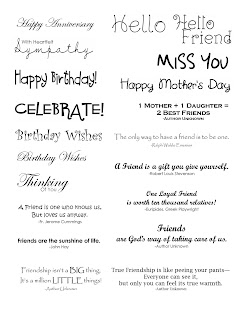 Happy Anniversary
With Heartfelt
Sympathy
Happy Birthday!
CELEBRATE!
Birthday Wishes
Birthday Wishes
Thinking
Of You
A Friend is one who knows us,
But loves us anyway.
Fr. Jerome Cummings
Friends are the sunshine of life.
-John Hay
Friendship isn't a BIG thing,
It's a million LITTLE things!
-Author Unknown
Hello Hello
Friend
MISS YOU
Happy Mother's Day
1 Mother + 1 Daughter =
2 Best Friends
Author Unknown
The only way to have a friend is to be one.
-Ralph Waldo Emerson
A Friend is a gift you give yourself.
-Robert Louis Stevenson
One Loyal Friend
is worth ten thousand relatives!
-Euripides, Greek Playwright
Friends
are God's way of taking care of us.
-Author Unknown
True Friendship is like peeing your pants—
Everyone can see it,
but only you can feel its true warmth.
Author Unknown